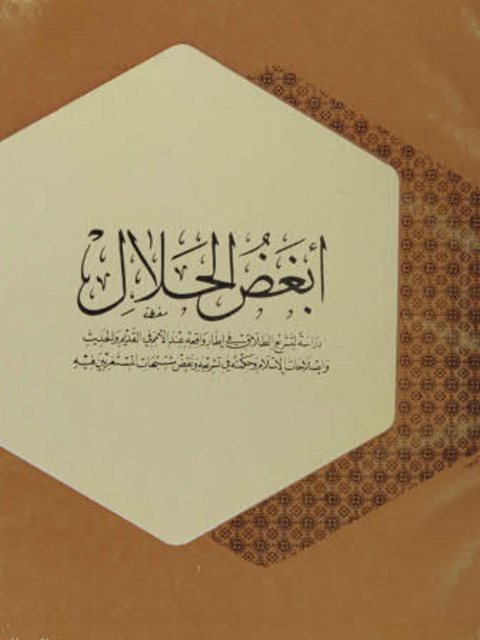 أبغَضُ الحَلَالِ
دراسة لتشريع الطلاق في إطار واقعه عند الأمم في القديم والحديث
وإصلاحات الإسلام وحكمته في تشريعه ونقض شبهات المستغربين فيه